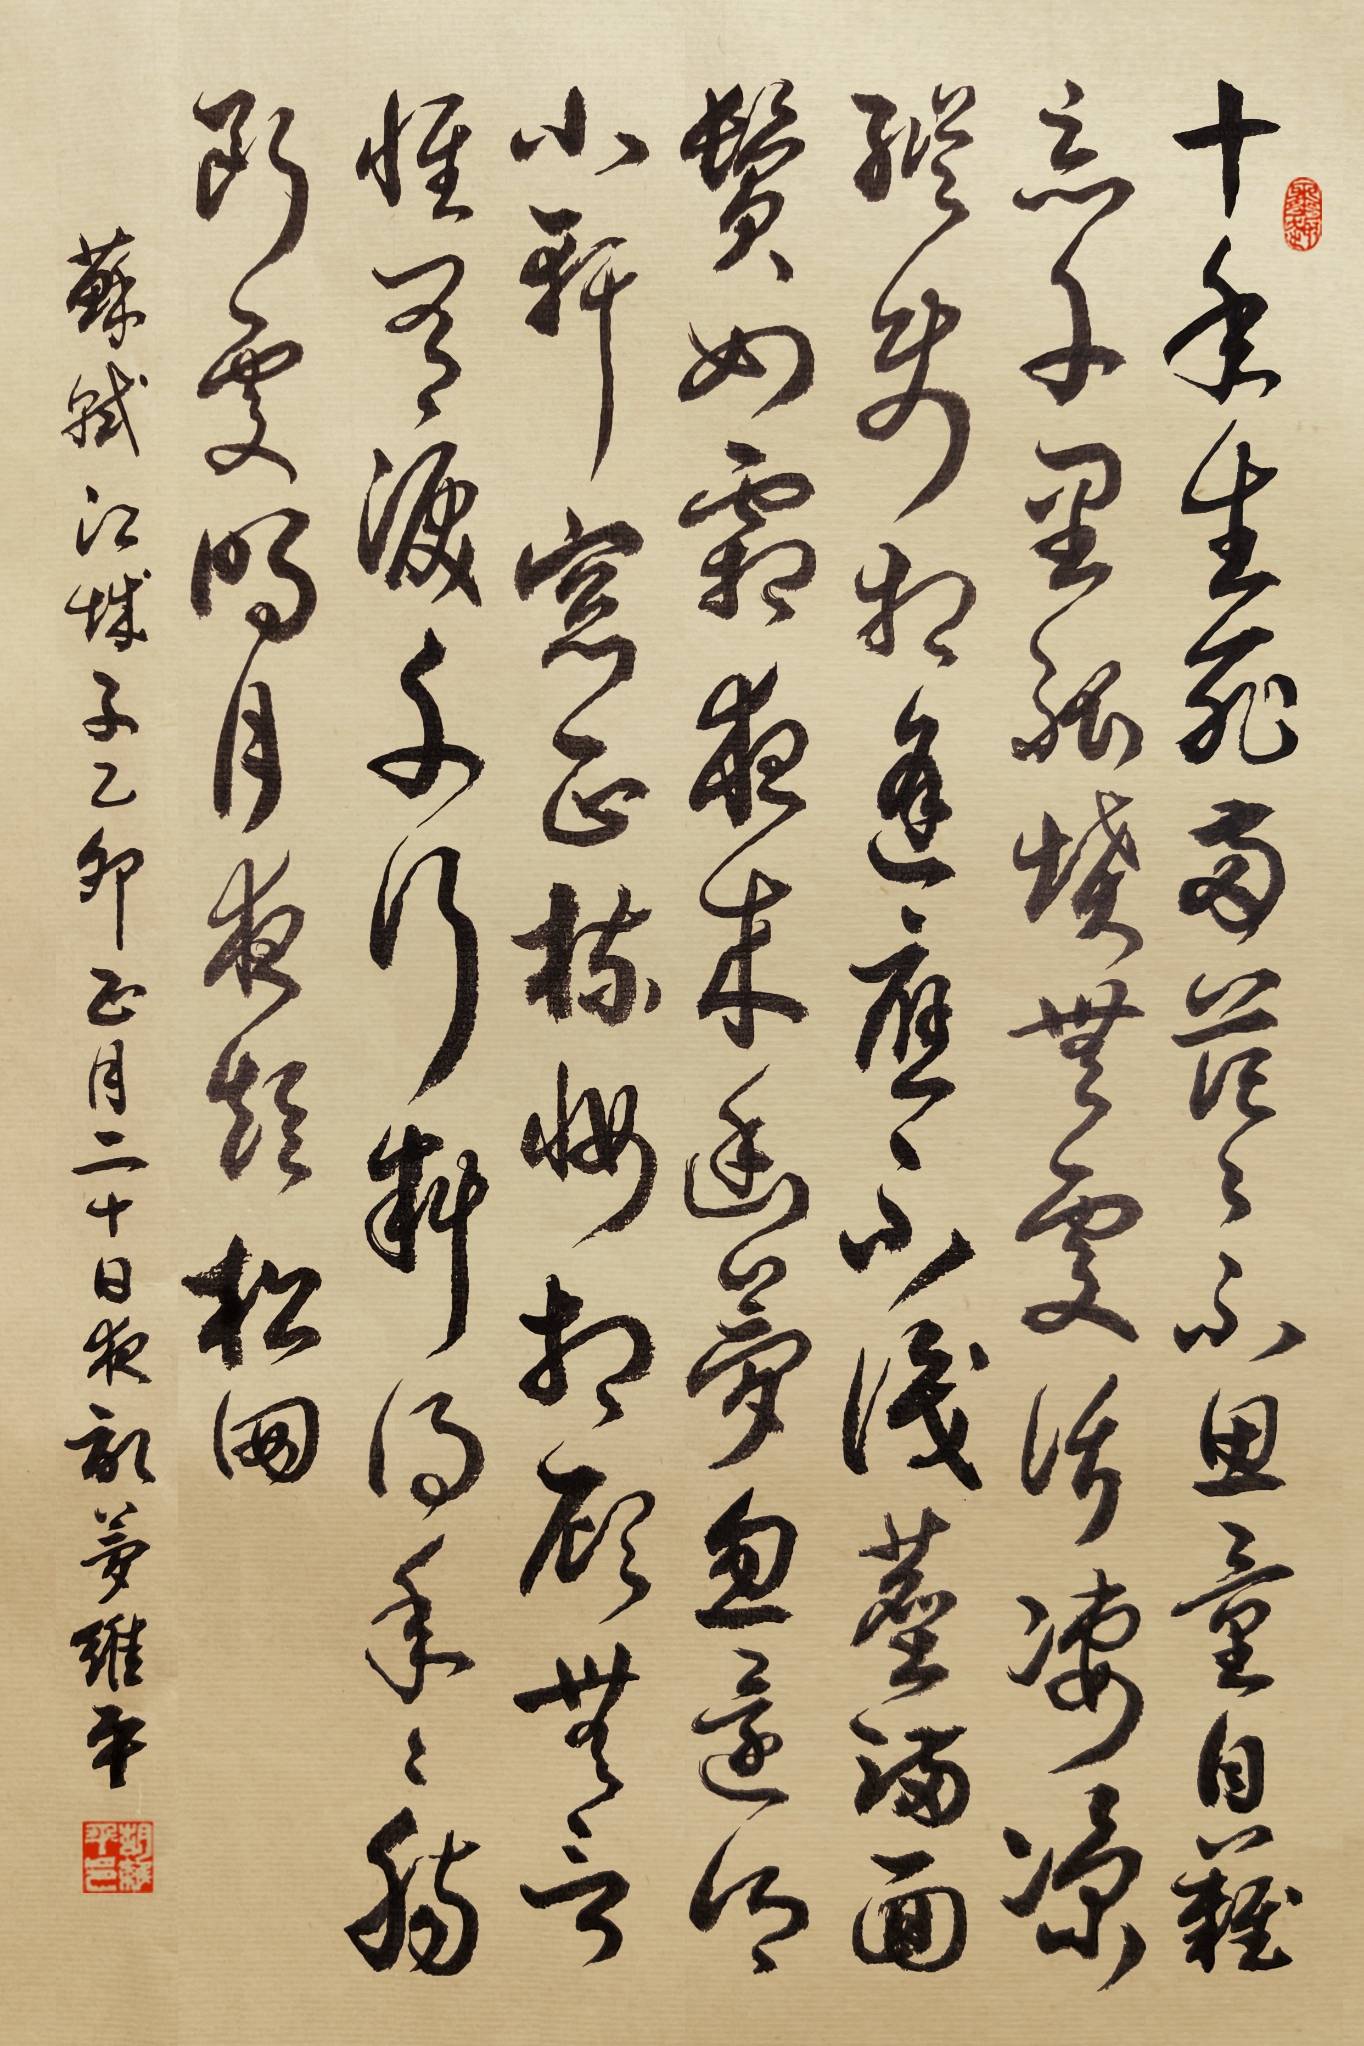 十年生死兩茫々不思量自難
忘千里孤墳無處話凄凉
縱使相逢應不識塵滿面
鬢如霜夜來幽夢忽還鄉
小軒窓正梳妝相顧無言
惟有淚千行料得年々腸
斷處明月夜短松岡
蘇軾江城子乙卯正月二十日夜記夢維平
胡維平印